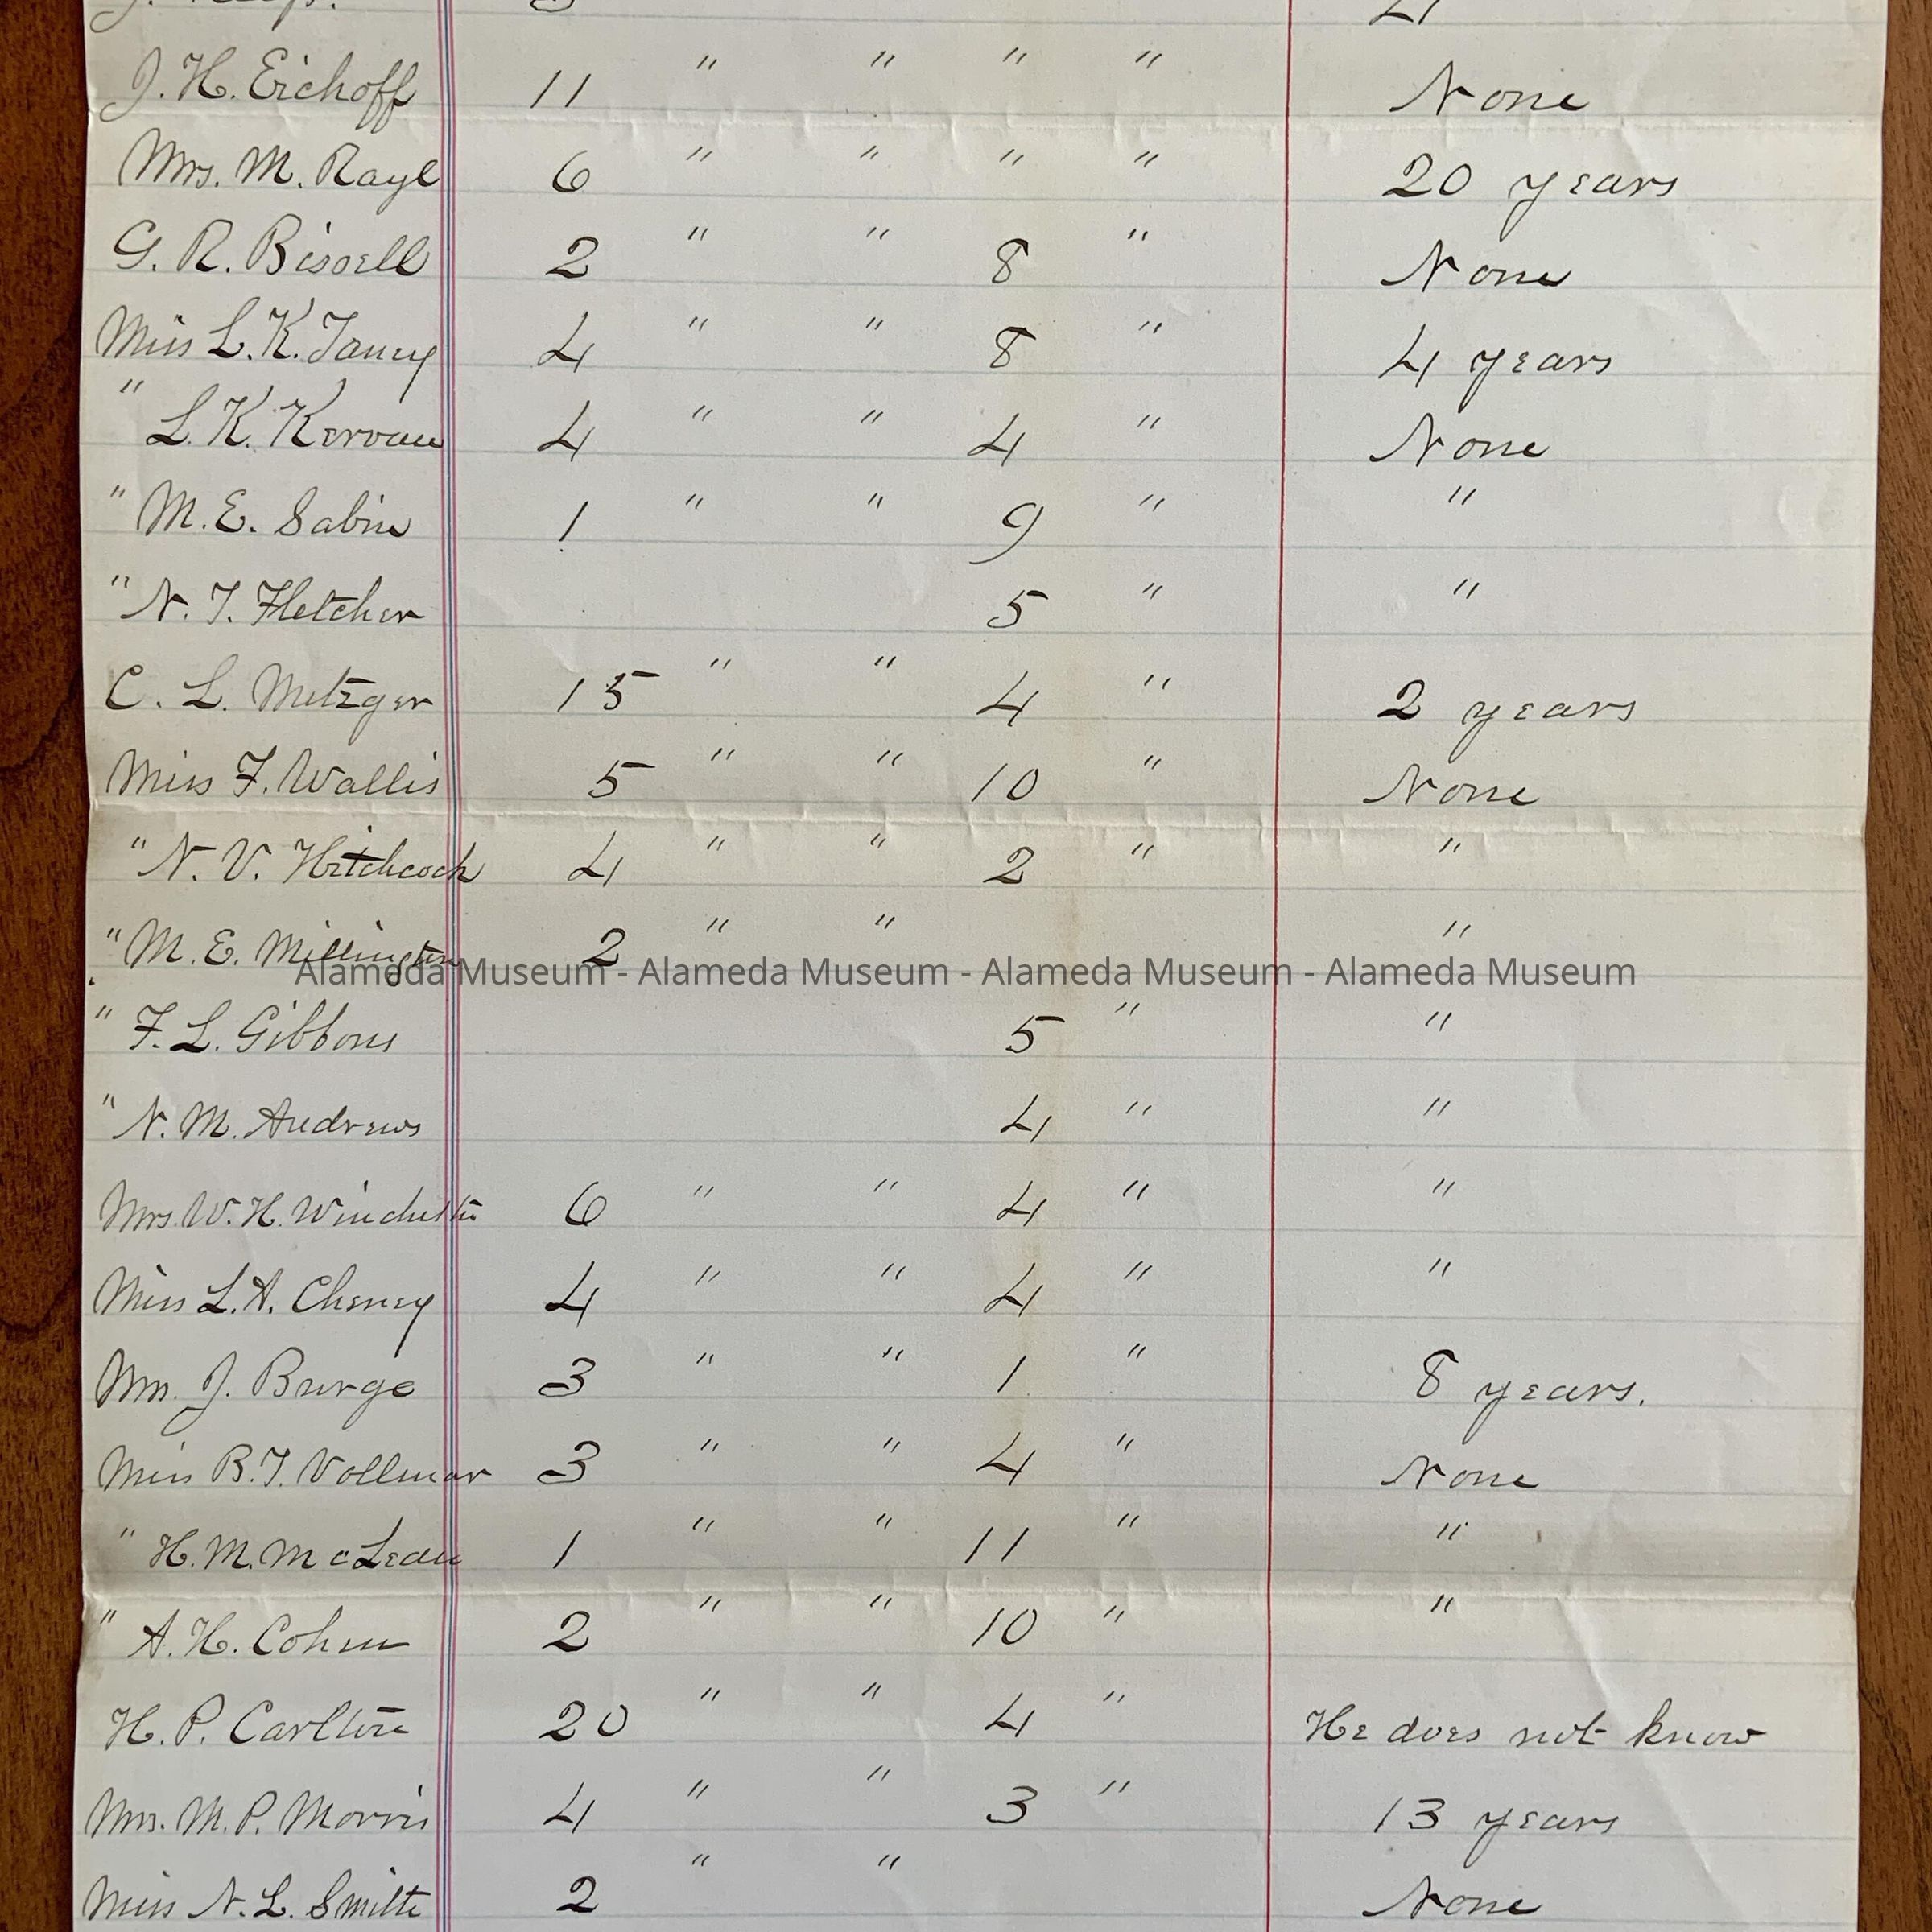 J. H. Eichoff 11 " " " " None
Mrs. M. Rayl 6 " " " " 20 years
G. R. Bissell 2 " " 8 " None
Miss L. K. Taney 4 " " 8 " 4 years
" L. K. Kervan 4 " " 4 " None
" M. E. Sabin 1 " " 9 " "
" N. T. Fletcher 5 " "
C. L. Metzger 15 " " 4 " 2 years
Miss F. Wallis 5 " " 10 " None
" N. V. Hitchcock 4 " " 2 " "
" M. E. Millington 2 " " "
Alameda Museum - Alameda Museum - Alameda Museum - Alameda Museum
" F. L. Gibbons 5 " "
" N. M. Andrews 4 " "
Mrs. W. H. Winchester 6 " " 4 " "
Miss L. A. Cheney 4 " " 4 " "
Mrs. J. Burge 3 " " 1 " 8 years.
Miss B. T. Vollmer 3 " " 4 " None
" H. M. McLean 1 " " 11 " "
" A. H. Cohen 2 " " 10 " "
H. P. Carlton 20 " " 4 " He does not know
Mrs. M. P. Morris 4 " " 3 " 13 years
Miss N. L. Smith 2 " " None